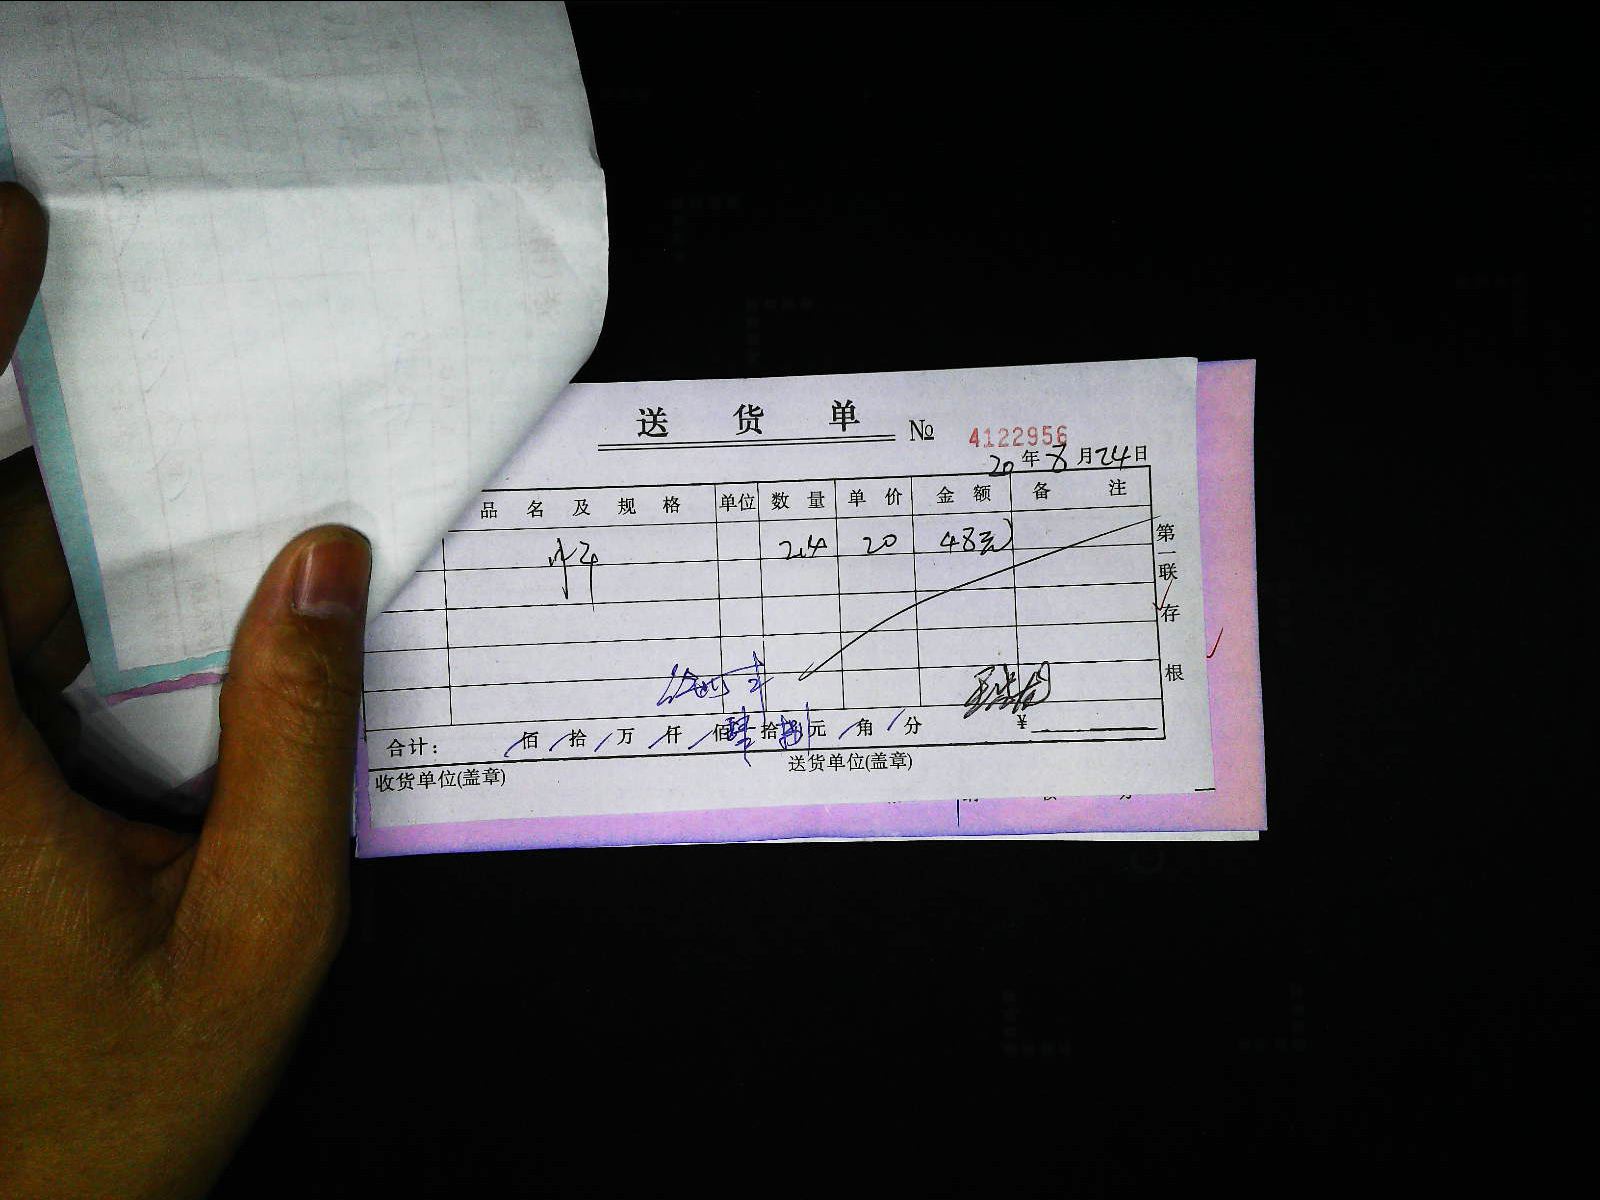 送货单 № 4122956
20年8月24日
品名及规格 单位 数量 单价 金额 备注
2.4 20 48元
第一联存根
合计： 佰 拾 万 仟 佰肆拾捌元 角 分 ¥
收货单位(盖章) 送货单位(盖章)